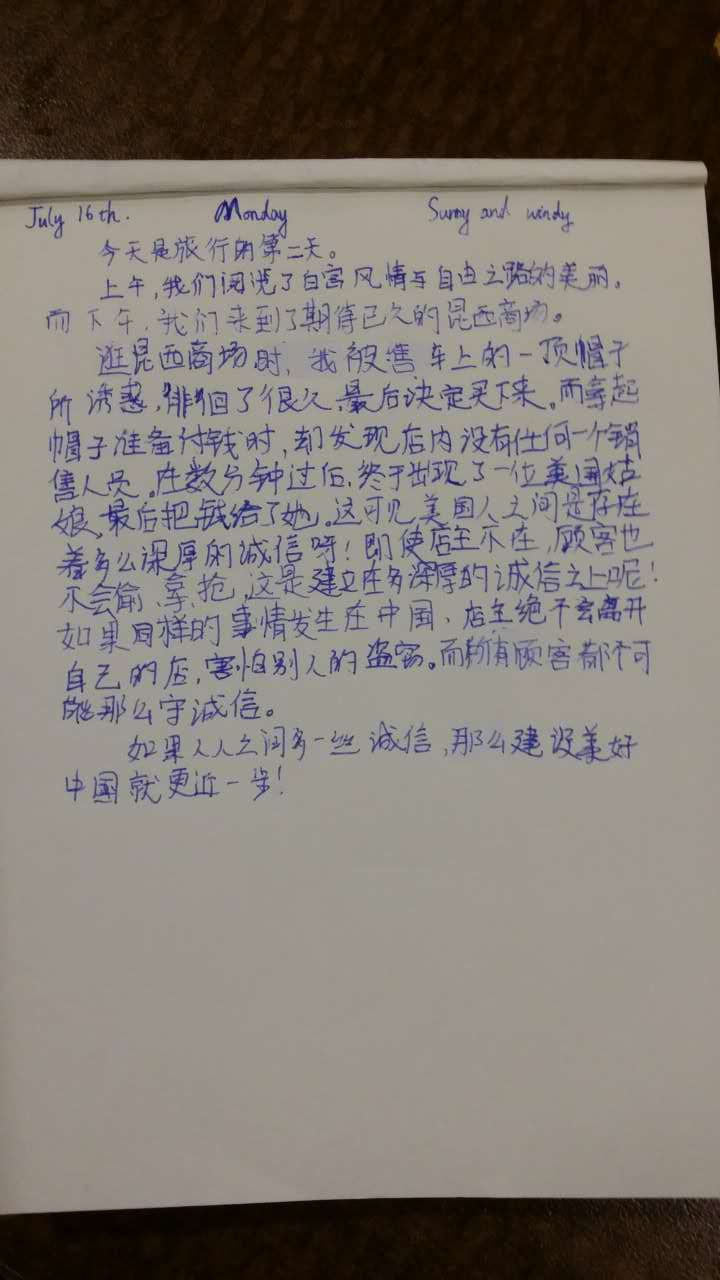 July 16th. Monday Sunny and windy
今天是旅行的第二天。
上午,我们阅览了白宫风情与自由之路的美丽。
而下午,我们来到了期待已久的昆西商场。
逛昆西商场时,我被售车上的一顶帽子
所诱惑,徘徊了很久,最后决定买下来。而拿起
帽子准备付钱时,却发现店内没有任何一个销
售人员。在数分钟过后,终于出现了一位美国姑
娘,最后把钱给了她。这可见美国人之间是存在
着多么深厚的诚信呀!即使店主不在,顾客也
不会偷、拿、抢,这是建立在多深厚的诚信之上呢!
如果同样的事情发生在中国,店主绝不会离开
自己的店,害怕别人的盗窃。而所有顾客都不可
能那么守诚信。
如果人人之间多一些诚信,那么建设美好
中国就更近一步!